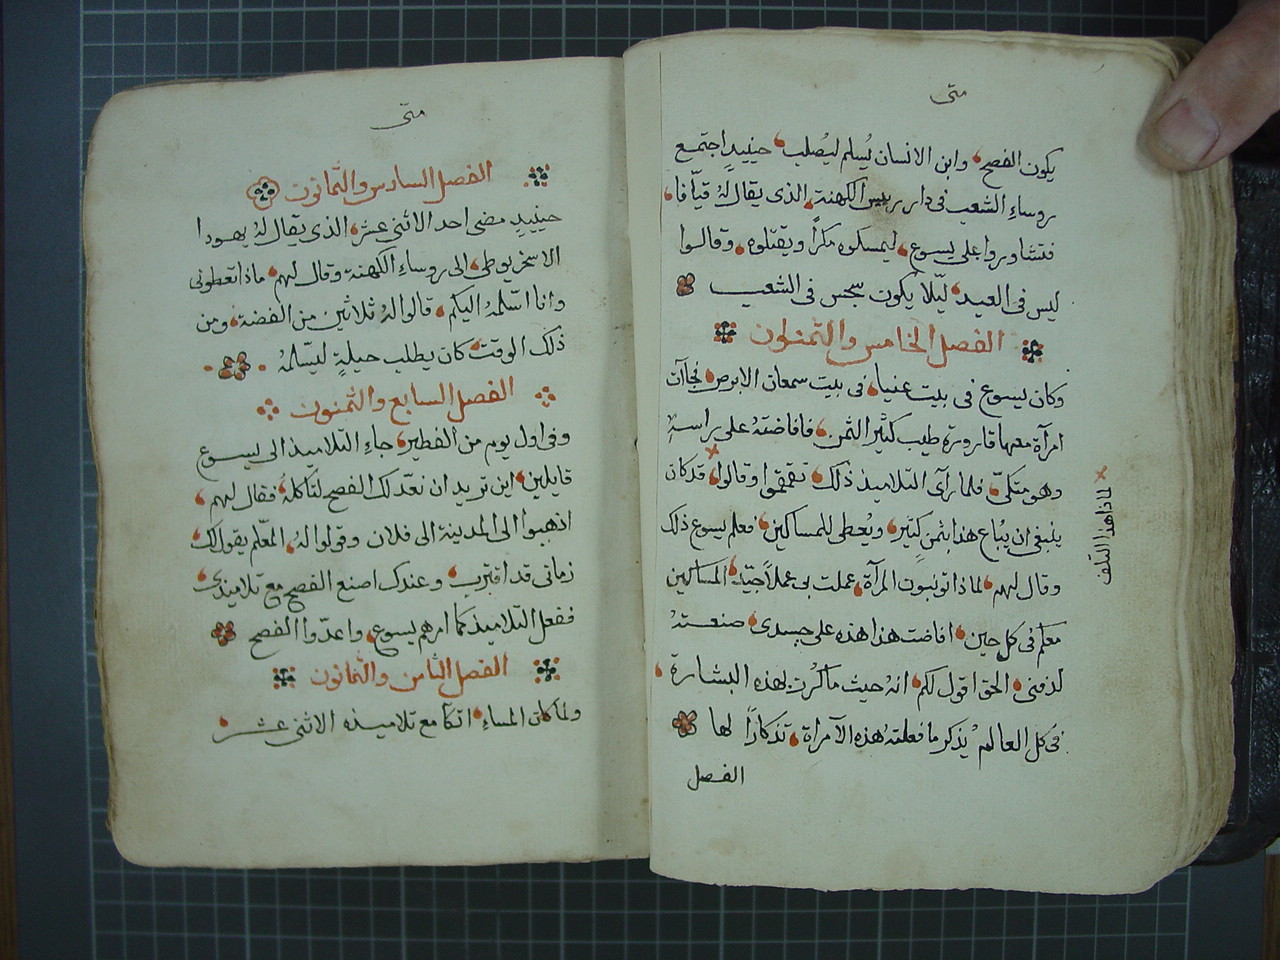 متى
يكون الفصح، وابن الانسان يُسلم ليُصلب، حينيدٍ اجتمع
روساءِ الشعب في دار رييس الكهنة، الذى يقال لهُ قيّافا،
فتشاوروا على يسوع، ليمسكوه مكراً ويقتلوه، وقالوا
ليس فى العيد، ليّلا يكون سجس فى الشعب
الفصل الخامس والثمنون
وكان يسوع فى بيت عنيا، فى بيت سمعان الابرص، فجآت
امرآة معها قارورة طيب كثير الثمن، فافاضتهُ على راسهِ
وهو متكىّ، فلما رآى التلاميذ ذلك، تقمقموا وقالوا، قد كان
ينبغى ان يُباع هذا بثمنٍ كثير، ويُعطى للمساكين، فعلم يسوع ذلك
وقال لهم، لماذا تونبوت المرآة، عملت بى عملاً جيّد، المساكين
معكم فى كل حين، افاضت هذا هذه على جسدى، صنعتهُ
لدفنى، الحق اقول لكم، انهُ حيث ما كرُز بهذه البشارة،
فى كل العالم يذكر ما فعلته هذه الآمراة، تذكاراً لها
الفصل
لماذا هذا التلف
متى
الفصل السادس والثمانون
حينيدٍ مضى احد الاثنى عشر، الذى يقال لهُ يهودا
الاسخريوطى، الى روساءِ الكهنة وقال لهم، ماذا تعطونى
وانا اسّلمهُ اليكم، قالوا لهُ ثلاثين من الفضة، ومن
ذلك الوقت كان يطلب حيلةٍ ليسّلمهُ
الفصل السابع والثمنون
وفى اول يوم من الفطير، جاءِ التلاميذ الى يسوع
قايلين، اين تريد ان نعّد لك الفصح لتاكله، فقال لهم،
اذهبوا الى المدينة الى فلان وقولوا لهُ، المعّلم يقول لك،
زمانى قد اقترب، وعندك اصنع الفصح مع تلاميذى،
ففعل التلاميذ كما امرهم يسوع، واعدّوا الفصح
الفصل الثامن والثمانون
ولما كان المساءِ، اتكا مع تلاميذه الاثنى عشر،